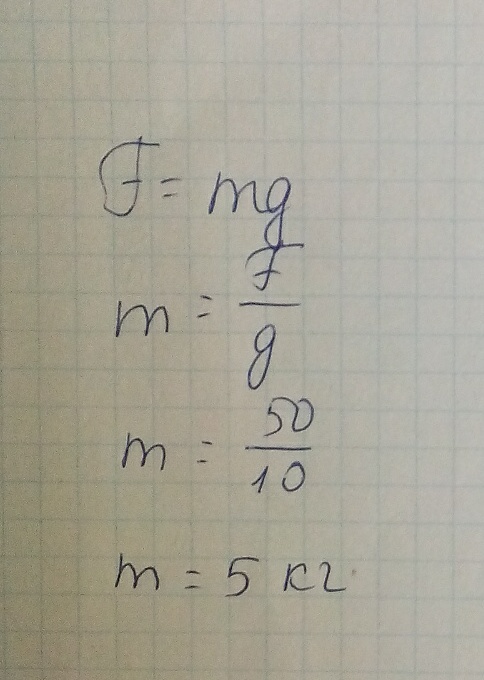 F = mg
m = F/g
m = 50/10
m = 5 кг